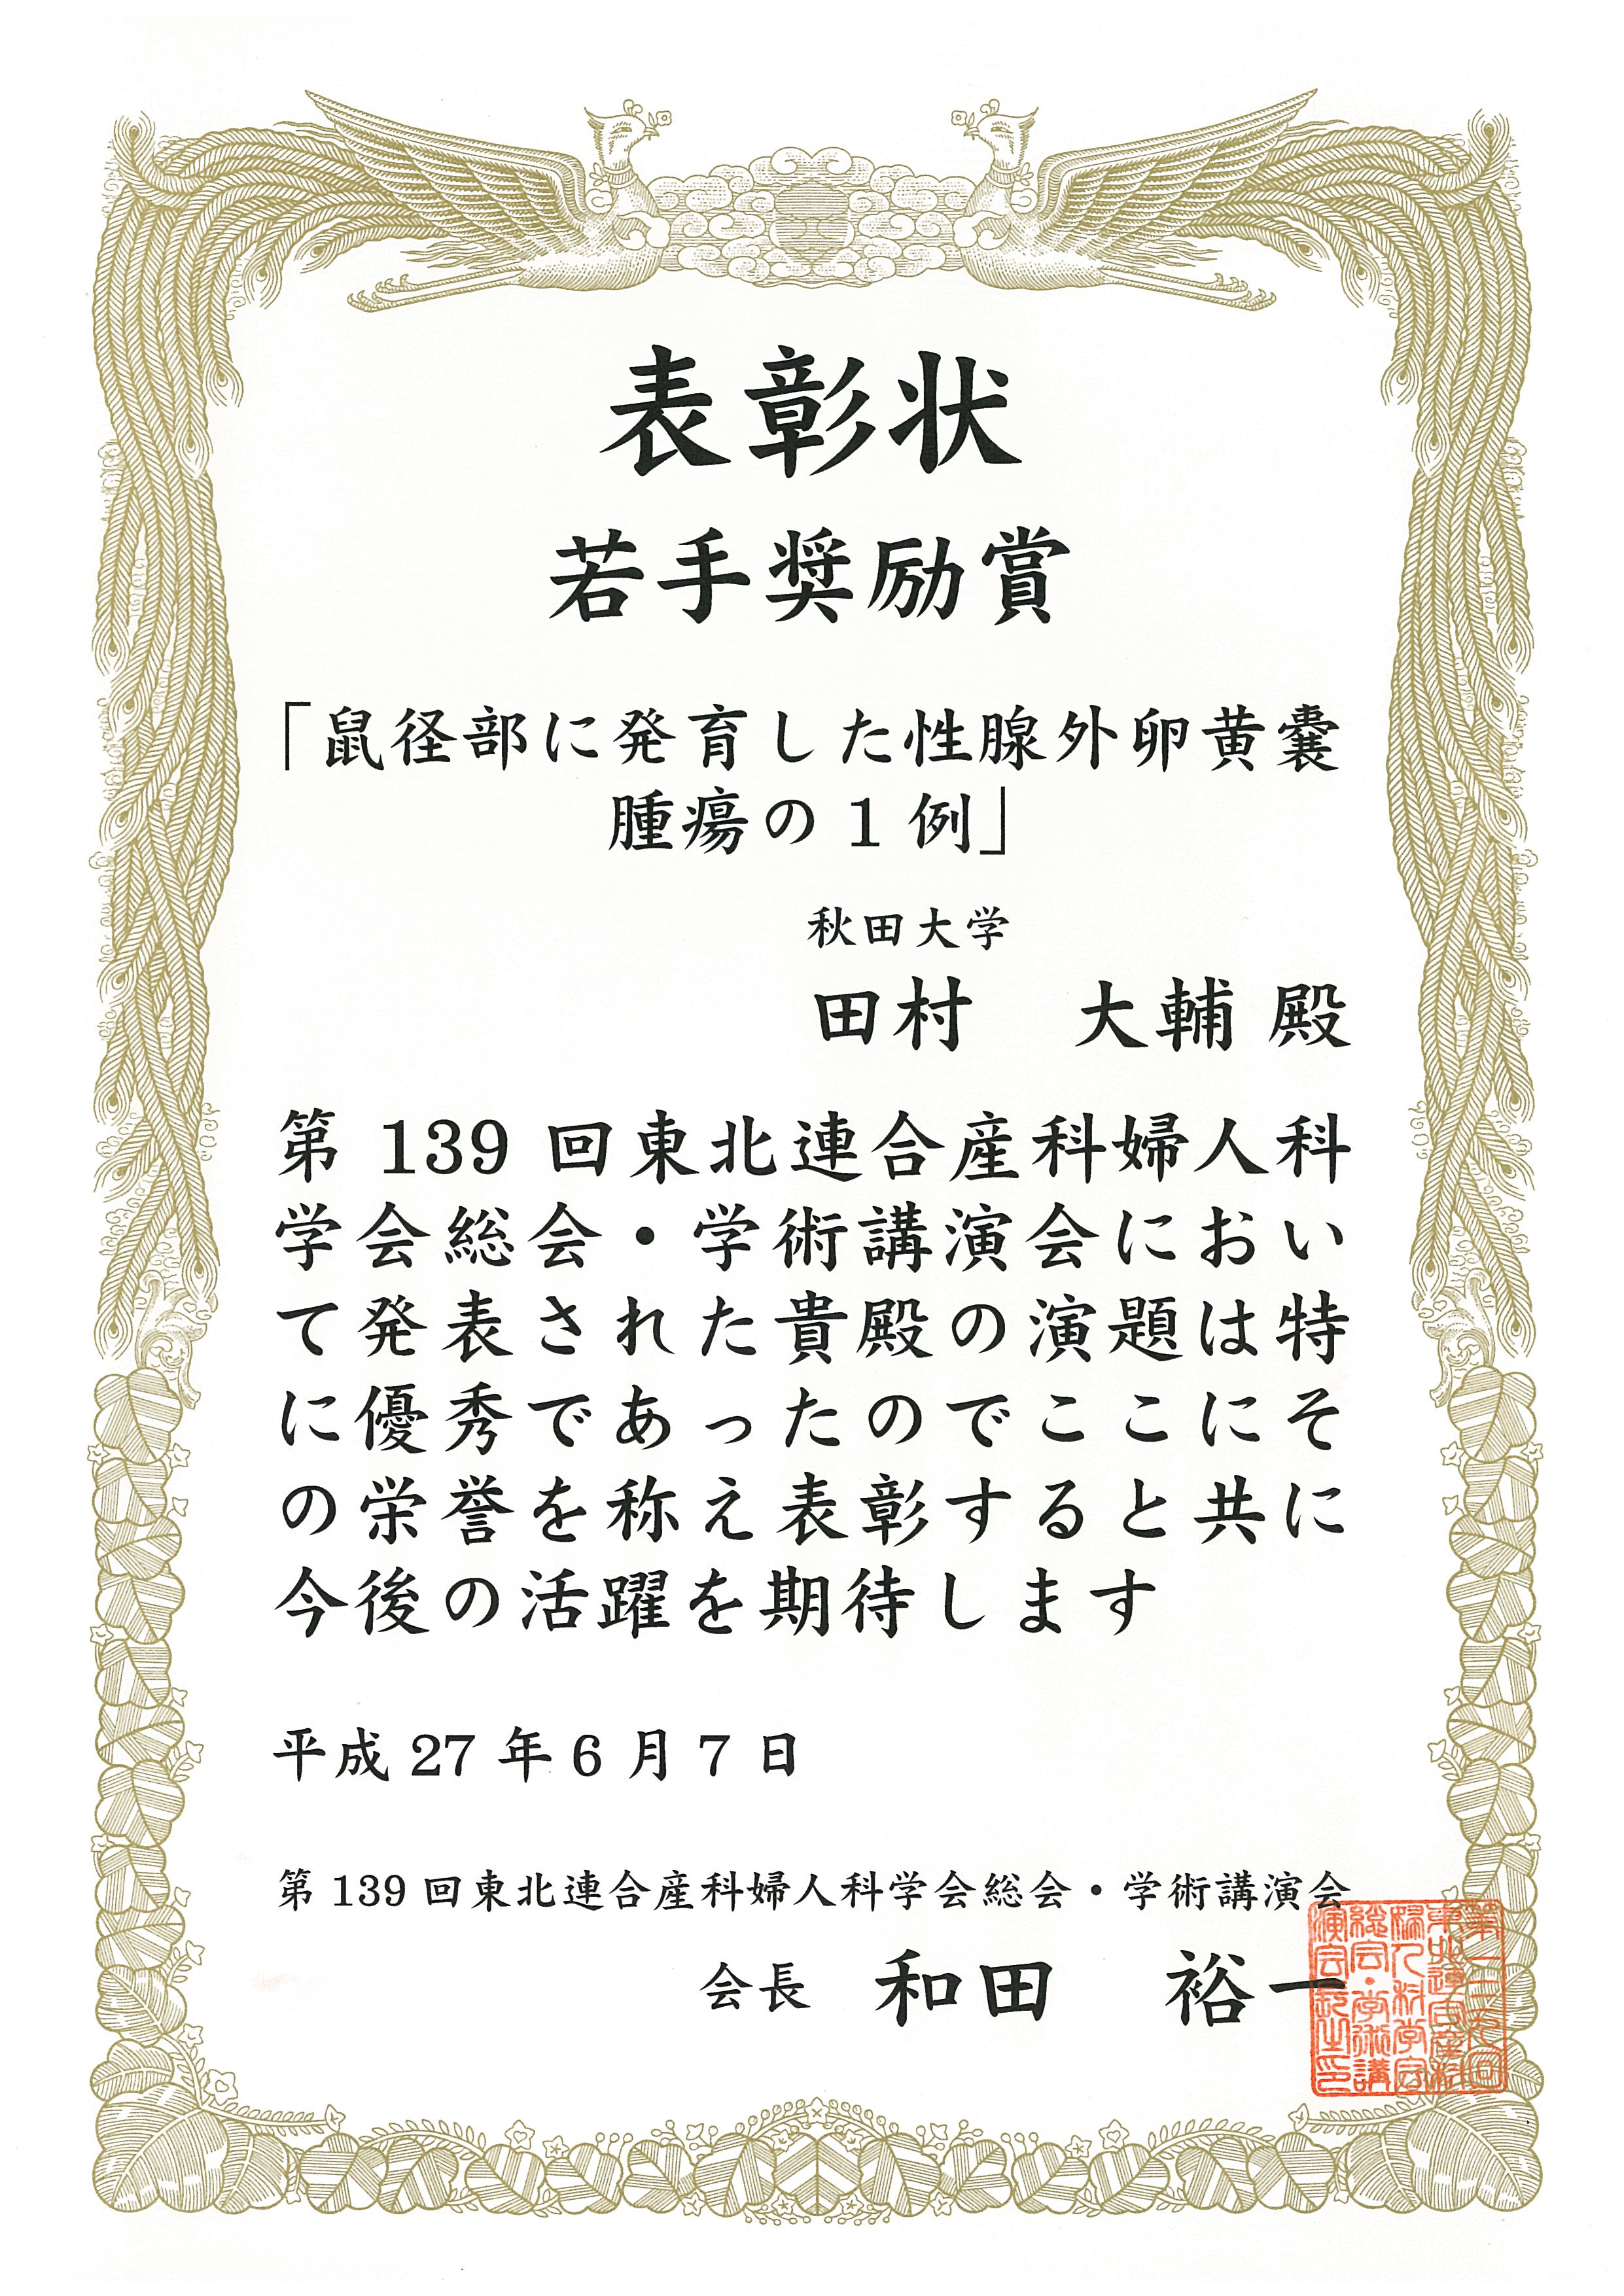 表彰状
若手奨励賞
「鼠径部に発育した性腺外卵黄嚢
腫瘍の1例」
秋田大学
田村 大輔 殿
第139回東北連合産科婦人科
学会総会・学術講演会におい
て発表された貴殿の演題は特
に優秀であったのでここにそ
の栄誉を称え表彰すると共に
今後の活躍を期待します
平成27年6月7日
第139回東北連合産科婦人科学会総会・学術講演会
会長 和田 裕一